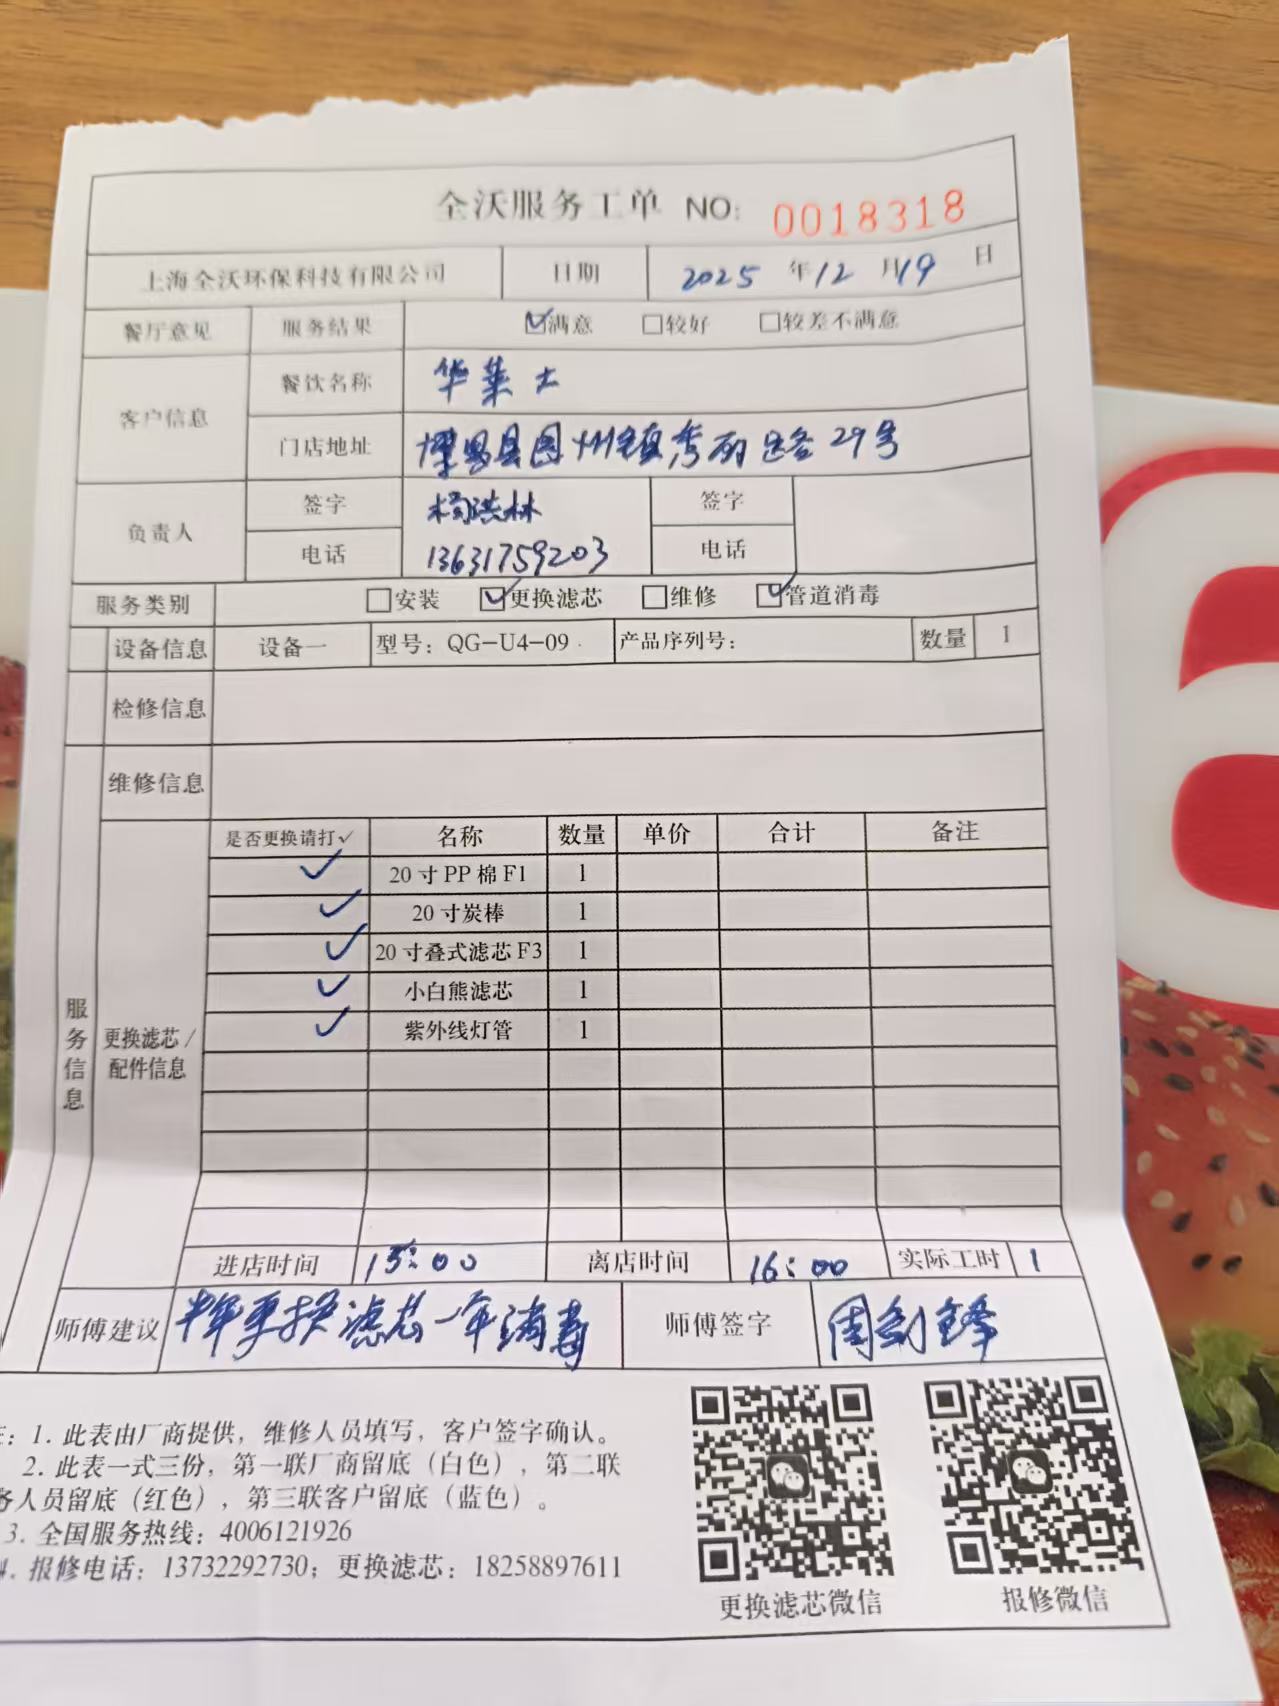 全沃服务工单 NO: 0018318
上海全沃环保科技有限公司 日期 2025 年 12 月 19 日
餐厅意见 服务结果 ☑满意 □较好 □较差不满意
客户信息 餐饮名称 华莱士
门店地址 博罗县园洲镇秀丽路29号
负责人 签字 杨洪林 签字
电话 13631759203 电话
服务类别 □安装 ☑更换滤芯 □维修 ☑管道消毒
设备信息 设备一 型号：QG-U4-09 产品序列号： 数量 1
检修信息
维修信息
服务信息
更换滤芯/配件信息
是否更换请打✓ 名称 数量 单价 合计 备注
✓ 20寸PP棉F1 1
✓ 20寸炭棒 1
✓ 20寸叠式滤芯F3 1
✓ 小白熊滤芯 1
✓ 紫外线灯管 1
进店时间 15:00 离店时间 16:00 实际工时 1
师傅建议 半年更换滤芯一年消毒 师傅签字 周剑锋
：1. 此表由厂商提供，维修人员填写，客户签字确认。
2. 此表一式三份，第一联厂商留底（白色），第二联
务人员留底（红色），第三联客户留底（蓝色）。
3. 全国服务热线：4006121926
4. 报修电话：13732292730；更换滤芯：18258897611
更换滤芯微信 报修微信